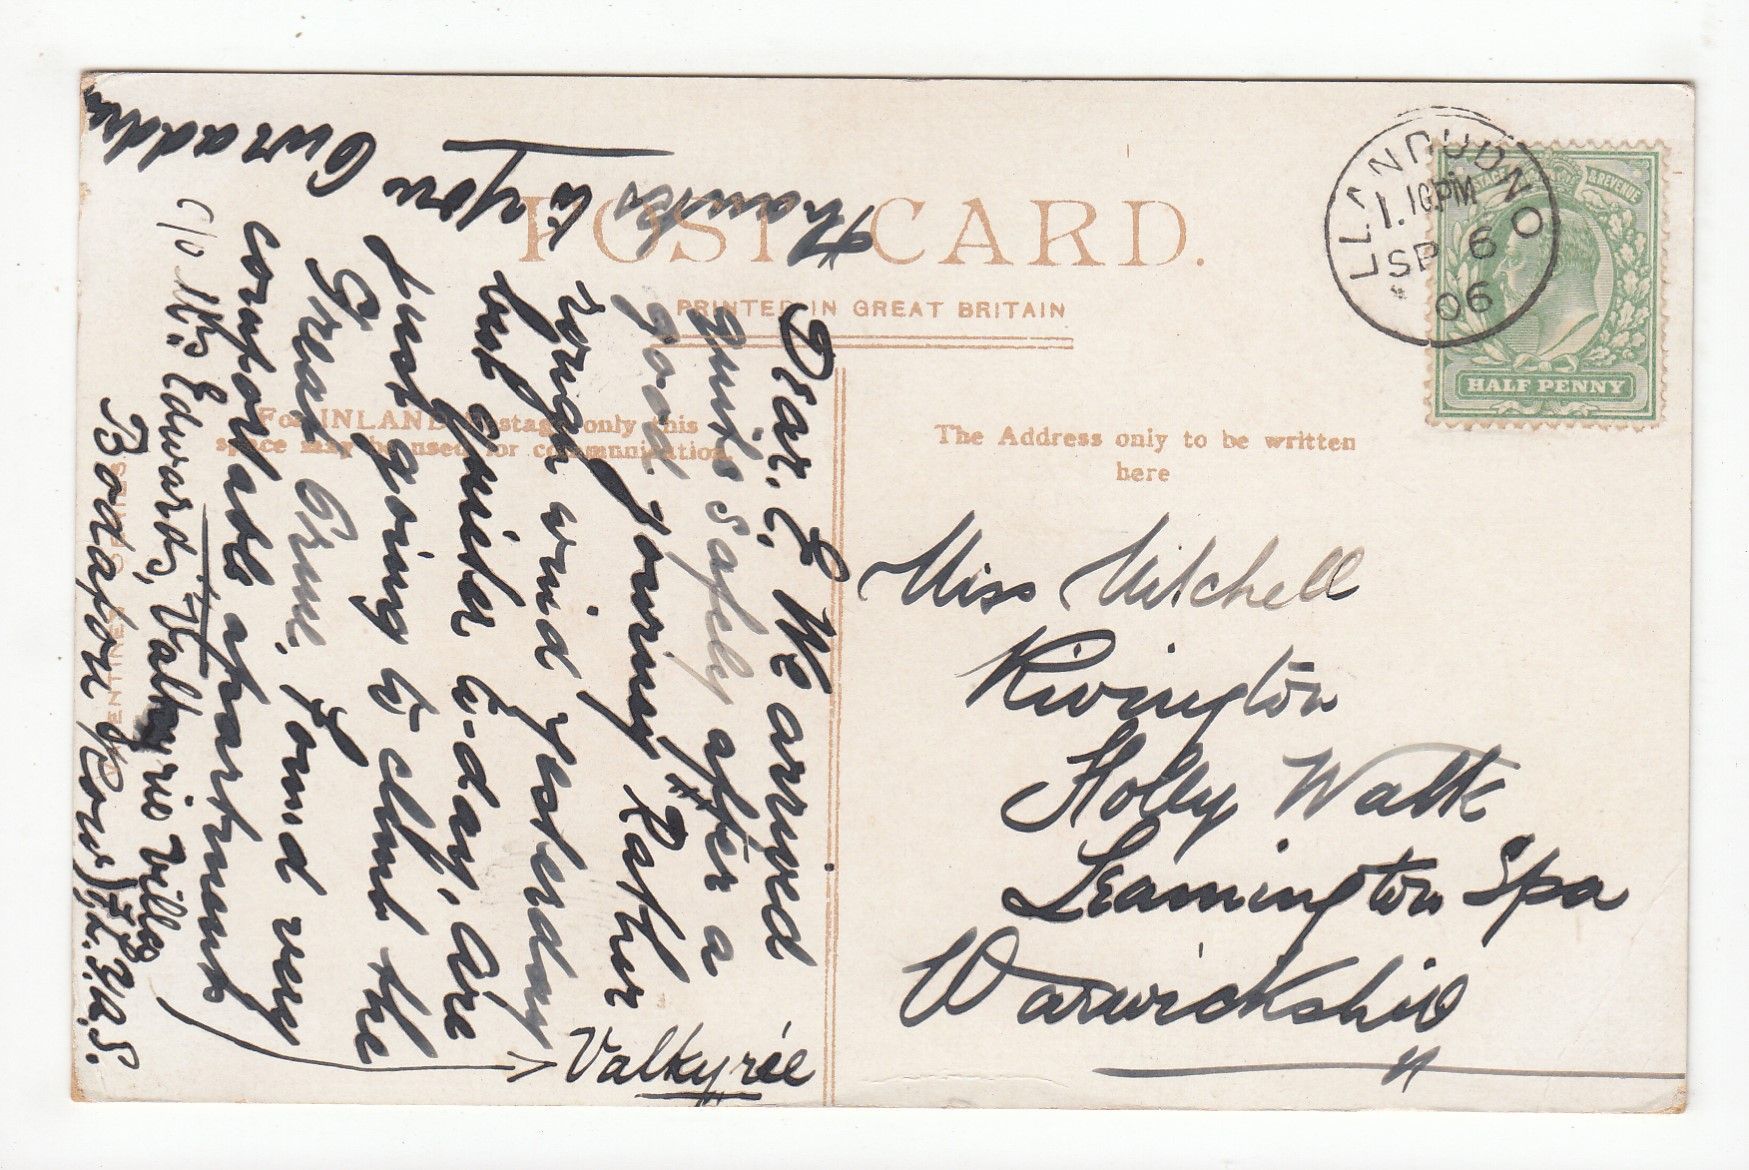 POST CARD.
PRINTED IN GREAT BRITAIN
For INLAND Postage only this
space may be used for communication.
The Address only to be written
here
LLANDUDNO
1.10PM
SP 6
06
POSTAGE & REVENUE
HALF PENNY
Miss Mitchell
Rivington
Holly Walk
Leamington Spa
Warwickshire
Dear E. We arrived
quite safely after a
good journey. Rather
rough wind yesterday
but quieter to-day, are
just going to climb the
Great Orme, found very
comfortable apartments
c/o Mrs Edwards, Valkyrie Villa
Bodafon Row
Valkyrie
Thanks to you
Our addre